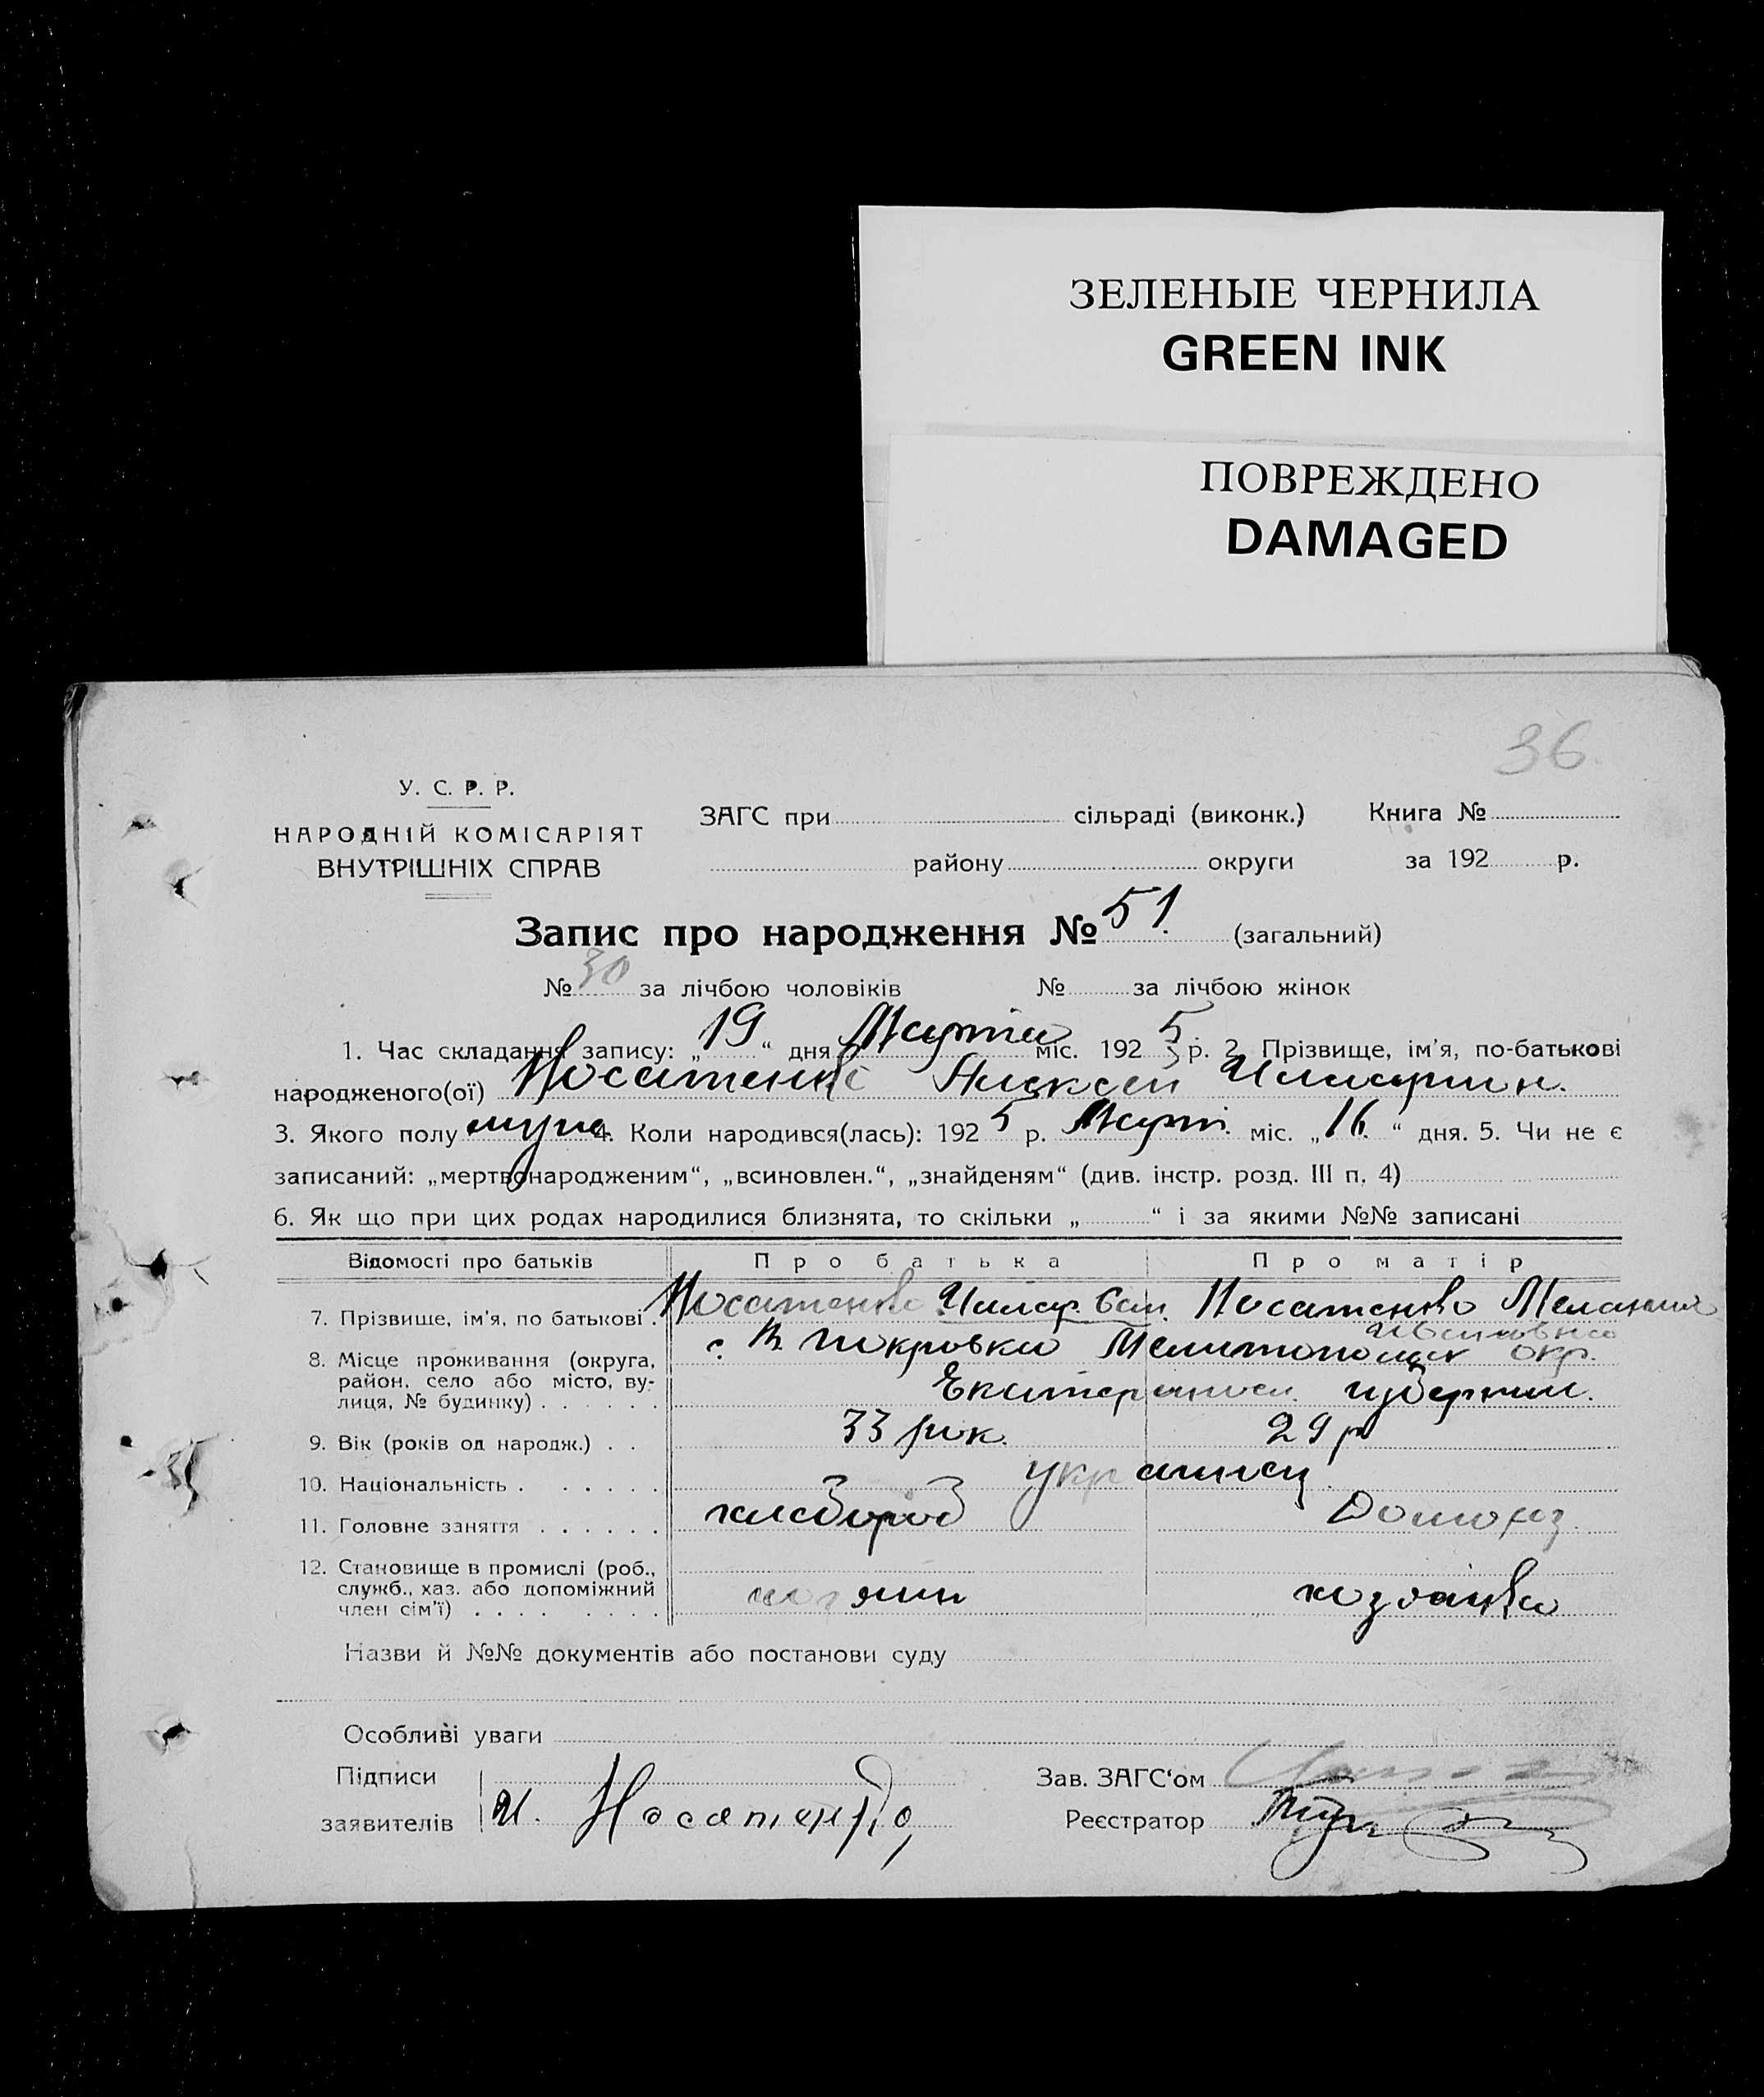 ЗЕЛЕНЫЕ ЧЕРНИЛА
GREEN INK
ПОВРЕЖДЕНО
DAMAGED
36
У. С. Р. Р.
НАРОДНІЙ КОМІСАРІЯТ
ВНУТРІШНІХ СПРАВ
ЗАГС при сільраді (виконк.) Книга №
району округи за 192 р.
Запис про народження № 51. (загальний)
№ 30 за лічбою чоловіків № за лічбою жінок
1. Час складання запису: „19“ дня Марта міс. 1925 р. 2. Прізвище, ім'я, по-батькові
народженого(ої) Носатенко Алексей Иллари н.
3. Якого полу муж. 4. Коли народився(лась): 1925 р. Март. міс. „16.“ дня. 5. Чи не є
записаний: „мертвонародженим“, „всиновлен.“, „знайденям“ (див. інстр. розд. III п. 4)
6. Як що при цих родах народилися близнята, то скільки „ “ і за якими №№ записані
Відомості про батьків Про батька Про матір
7. Прізвище, ім'я, по батькові . Носатенко Илар. Носатенко Мелания
Ивановна
8. Місце проживання (округа, с. Покровка Мелитопольск окр.
район, село або місто, ву-
лиця, № будинку) . . . . . . Екатериносл. губернии.
9. Вік (років од народж.) . . 33 рок. 29 р
10. Національність . . . . . . украинец
11. Головне заняття . . . . . . хлебороб Домохоз.
12. Становище в промислі (роб.,
служб., хаз. або допоміжний хозяин хозяйка
член сім'ї) . . . . . . . .
Назви й №№ документів або постанови суду
Особливі уваги
Підписи Зав. ЗАГС'ом
заявителів И. Носатенко Реєстратор